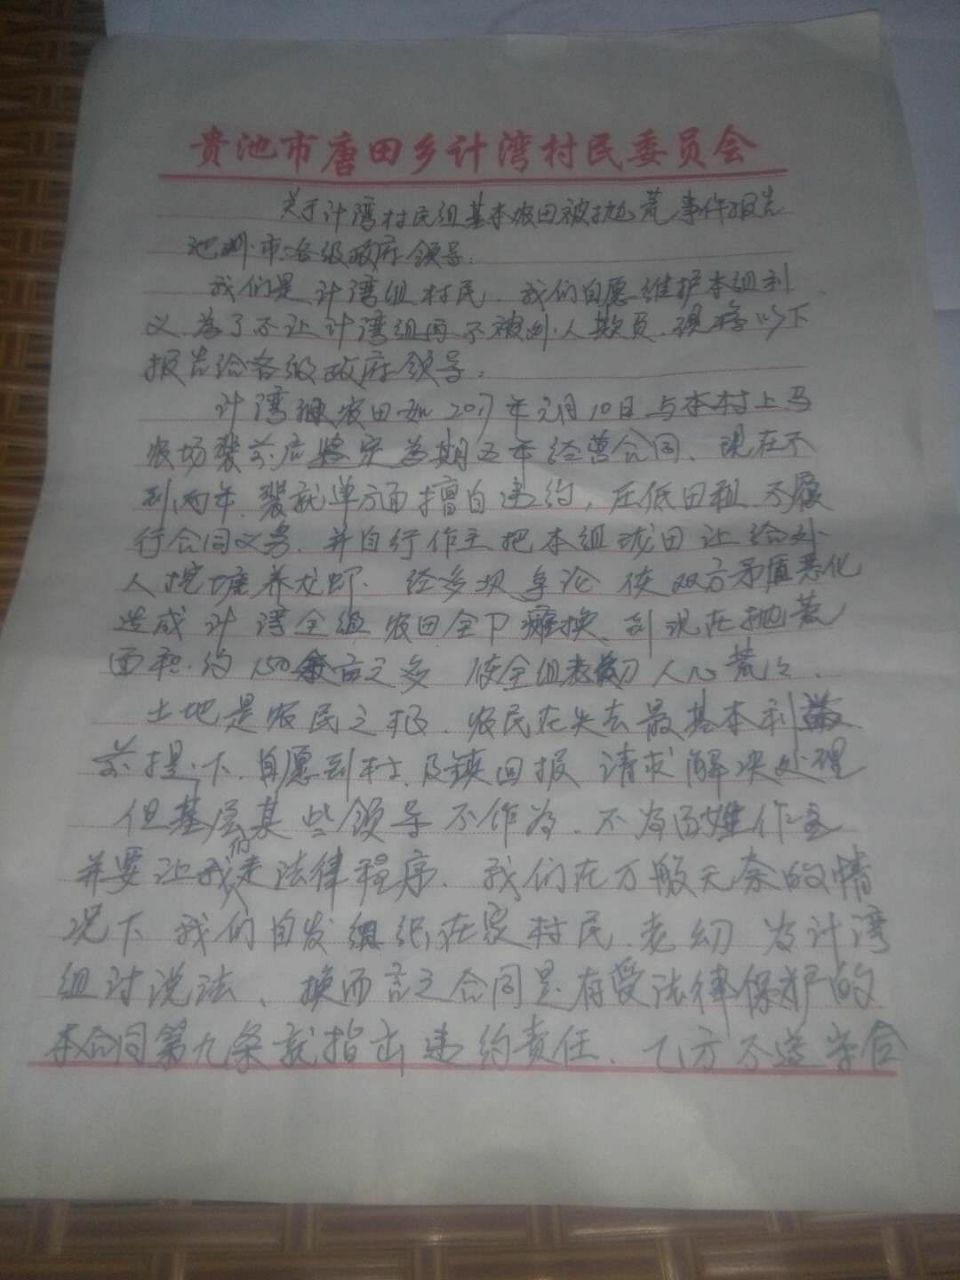 贵池市唐田乡计湾村民委员会
关于计湾村民组基本农田被抛荒事件报告
池州市各级政府领导:
我们是计湾组村民,我们自愿维护本组利
义,为了不让计湾组再不被别人欺负,现将以下
报告给各级政府领导:
计湾组农田如2017年元月10日与本村上马
农场裴 为期五年经营合同,现在不
到两年,裴就单方面擅自违约,压低田租,不履
行合同义务,并自行作主把本组 田让给外
人挖塘养龙虾.经多次争论 使双方矛盾恶化
造成计湾全组农田全卩瘫换,到现在抛荒
面积约 亩之多 使全组老幼人心荒
土地是农民之根,农民在失去最基本利益
前提下,自愿到村及镇回报 请求解决处理
但基层某些领导不作为,不为百姓作主
并要让我们走法律程序,我们在万般无奈的情
况下 我们自发组织在家村民,老幼 为计湾
组讨说法、换而言之合同是有受法律保护的
本合同第九条就指出违约责任、乙方不遵守合